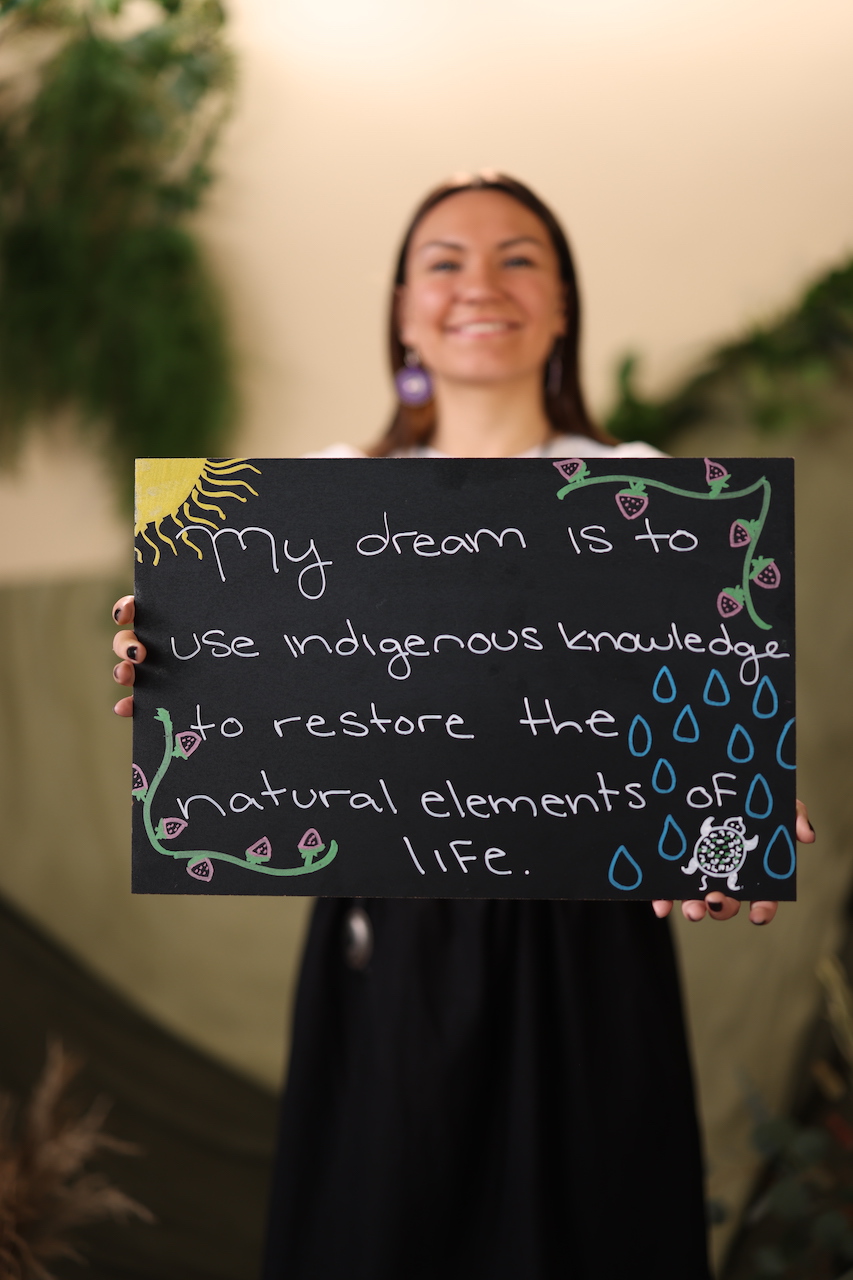 My dream is to
use indigenous knowledge
to restore the
natural elements of
life.